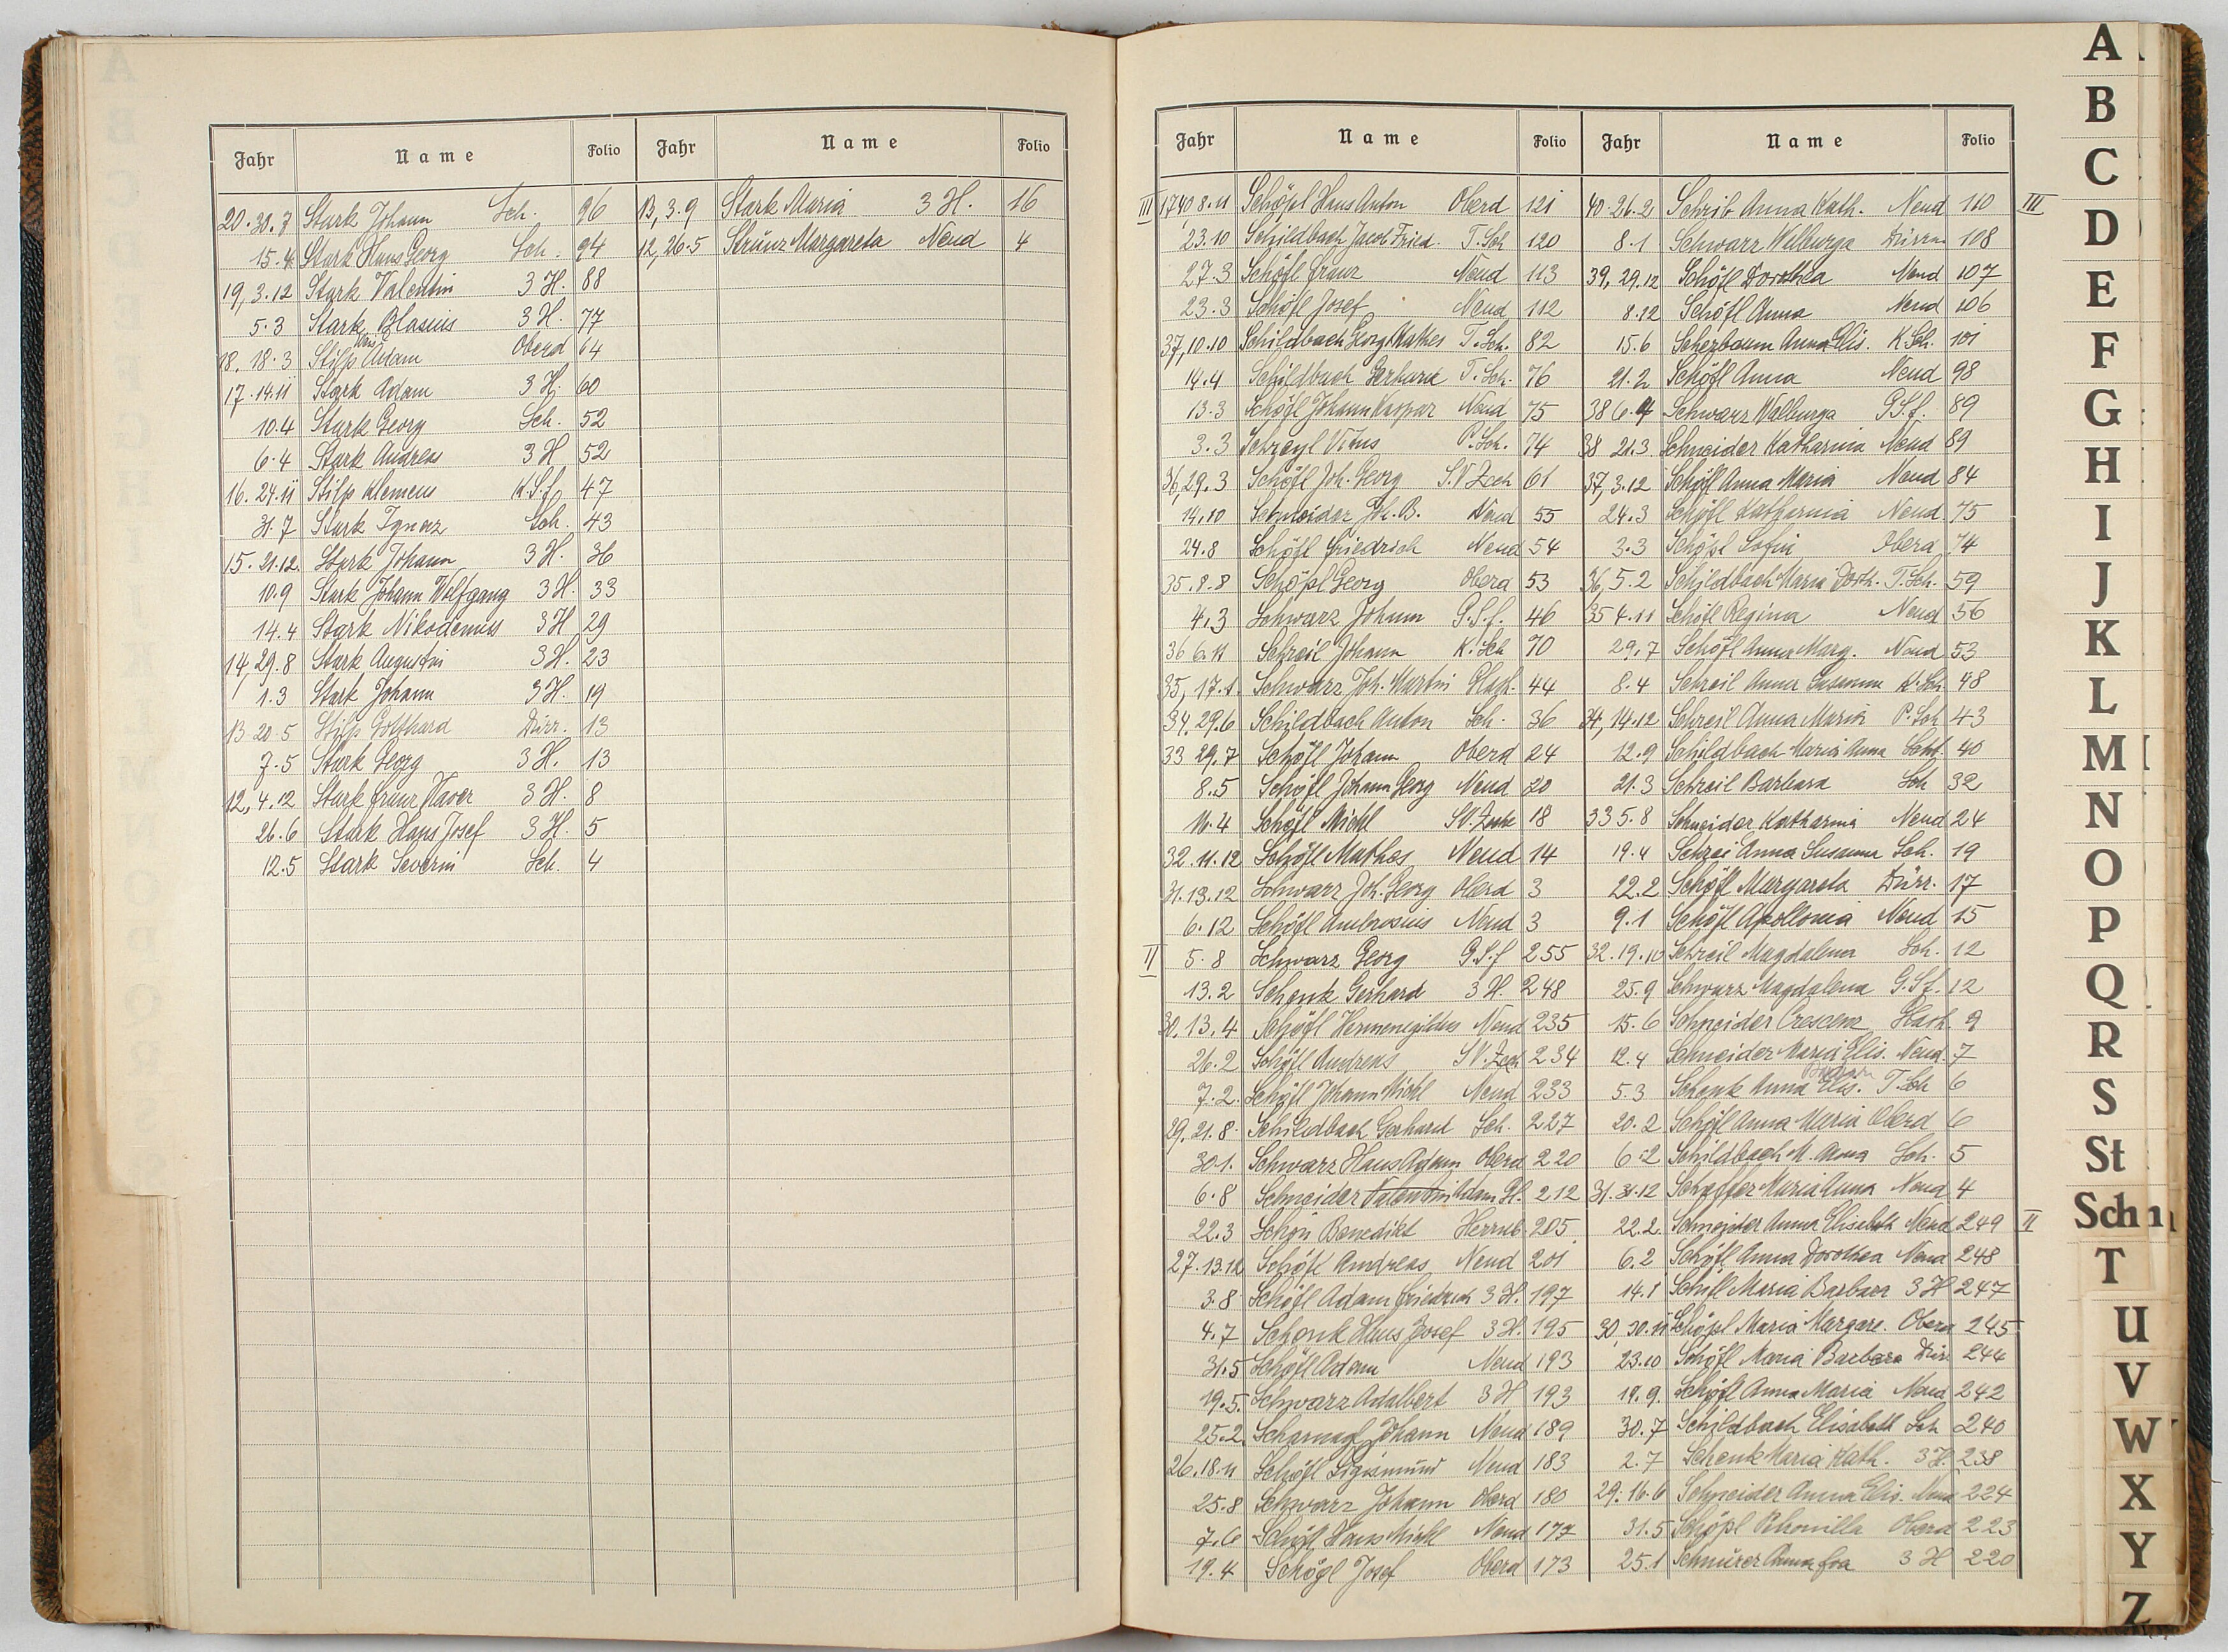 Jahr Name Folio Jahr Name Folio
20. 30.7 Stark Johann Sch. 96
15.4 Stark Hans Georg Sch. 94
19, 3.12 Stark Valentin 3 H. 88
5.3 Stark Blasius 3 H. 77
18. 18.3 Stilp Hans Adam Oberd 64
17. 14.11 Stark Adam 3 H. 60
10.4 Stark Georg Sch. 52
6.4 Stark Andreas 3 H 52
16. 24.11 Stilp Klemens K.S.f. 47
31.7 Stark Ignaz Sch. 43
15. 21.12. Stark Johann 3 H. 36
10.9 Stark Johann Wolfgang 3 H. 33
14.4 Stark Nikodemus 3 H 29
14, 29.8 Stark Augustin 3 H. 23
1.3 Stark Johann 3 H. 19
13 20.5 Stilp Gotthard Dürr. 13
7.5 Stark Georg 3 H. 13
12, 4.12 Stark Franz Xaver 3 H. 8
26.6 Stark Hans Josef 3 H. 5
12.5 Stark Severin Sch. 4
13, 3.9 Stark Maria 3 H. 16
12, 26.5 Strünz Margareta Neud 4
Jahr Name Folio Jahr Name Folio
III 1740 8.11 Schöpl Hans Anton Oberd 121
23.10 Schildbach Jacob Fried. T.Sch 120
27.3 Schöfl Franz Neud 113
23.3 Schöfl Josef Neud 112
37, 10.10 Schildbach Georg Mathes T.Sch. 82
14.4 Schildbach Gerhard T.Sch. 76
13.3 Schöfl Johann Kaspar Neud 75
3.3 Schreyl Vitus P.Sch. 74
36, 29.3 Schöfl Joh. Georg S.V Zech 61
14.10 Schneider Joh. B. Neud 55
24.8 Schöfl Friedrich Neud 54
35. 8.8 Schöpl Georg Oberd 53
4.3 Schwarz Johann G.S.f. 46
36 6.11 Schreil Johann K.Sch 70
35, 17.1. Schwarz Joh. Martin Glash. 44
34. 29.6 Schildbach Anton Sch. 36
33 29.7 Schöfl Johann Oberd 24
8.5 Schöfl Johann Georg Neud 20
16.4 Schöfl Michl SV. Zeche 18
32. 11.12 Schöfl Mathes Neud 14
31. 13.12 Schwarz Joh. Georg Oberd 3
6.12 Schöfl Ambrosius Neud 3
II 5.8 Schwarz Georg G.S.f 255
13.2 Schenk Gerhard 3 H. 248
30. 13.4 Schöfl Hermenegildus Neud 235
26.2 Schöfl Andreas S V. Zech 234
7.2. Schöfl Johann Michl Neud 233
29. 21.8. Schildbach Gerhard Sch. 227
30.1. Schwarz Hans Adam Oberd 220
6.8 Schneider Valentin Adam Gl. 212
22.3 Schön Benedikt Herrnb. 205
27. 13.12 Schöfl Andreas Neud 201
3.8 Schöfl Adam Friedrich 3 H. 197
4.7 Schenk Hans Josef 3 H. 195
31.5 Schöfl Adam Neud 193
19.5. Schwarz Adalbert 3 H 193
25.2. Scharnagl Johann Neud 189
26. 18.11 Schöfl Sigismund Neud 183
25.8 Schwarz Johann Oberd 180
7.6 Schöfl Hans Michl Neud 177
19.4 Schögl Josef Oberd 173
40. 26.2 Schrib Anna Kath. Neud 110 III
8.1 Schwarz Walburga Dürrn 108
39, 29.12 Schöfl Dorothea Neud 107
8.12 Schöfl Anna Neud 106
15.6 Scherbaum Anna Elis. K.Sch. 101
21.2 Schöfl Anna Neud 98
38 6.4 Schwarz Walburga G.S.f. 89
38 21.3 Schneider Katharina Neud 89
37, 3.12 Schöfl Anna Maria Neud 84
24.3 Schöfl Katharina Neud. 75
3.3 Schöpl Sofia Oberd 74
36, 5.2 Schildbach Maria Doroth. T.Sch. 59
35 4.11 Schöfl Regina Neud 56
29.7 Schöfl Anna Marg. Neud 53
8.4 Schreil Anna Susanna K.Sch 48
34, 14.12 Schreil Anna Maria P.Sch 43
12.9 Schildbach Maria Anna Sch. 40
21.3 Schreil Barbara Sch 32
33 5.8 Schneider Katharina Neud 24
19.4 Schrei Anna Susanna Sch. 19
22.2 Schöfl Margareta Dürr. 17
9.1 Schöfl Apollonia Neud 15
32. 19.10 Schreil Magdalena Sch. 12
25.9 Schwarz Magdalena G.S.f. 12
15.6 Schneider Crescenz Glash. 9
12.4 Schneider Maria Elis. Neud. 7
5.3 Schenk Anna Elis. T.Sch 6
20.2 Schöfl Anna Maria Oberd 6
6.2 Schildbach M. Anna Sch. 5
31. 31.12 Schaffer Maria Anna Neud 4
22.2. Schneider Anna Elisabeth Neud 249 II
6.2 Schöfl Anna Dorothea Neud 248
14.1 Schöfl Maria Barbara 3 H 247
30, 30.11 Schöpl Maria Margare. Oberd 245
23.10 Schöfl Maria Barbara Dürr 244
19.9. Schöfl Anna Maria Neud 242
30.7 Schildbach Elisabeth Sch 240
2.7 Schenk Maria Kath. 3 H. 238
29. 16.6 Schneider Anna Elis. Neud 224
31.5 Schöpl Petronilla Oberd 223
25.1 Schnürer Anna Eva 3 H 220
A
B
C
D
E
F
G
H
I
J
K
L
M
N
O
P
Q
R
S
St
Sch
T
U
V
W
X
Y
Z